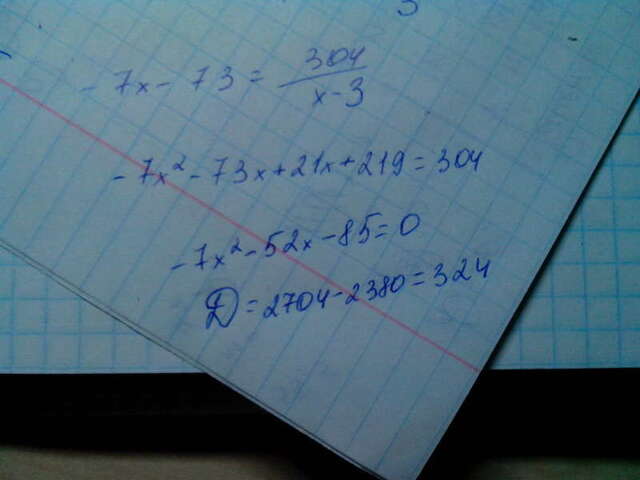 - 7x - 73 = 304 / x - 3
- 7x² - 73x + 21x + 219 = 304
- 7x² - 52x - 85 = 0
D = 2704 - 2380 = 324